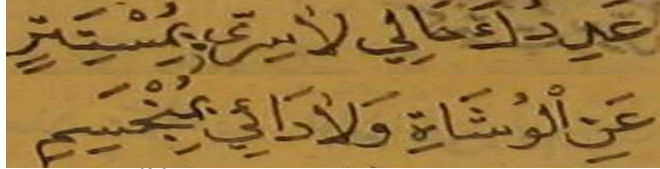 عَدِتْكَ حَالِي لَا سِرِّي بِمُسْتَتِرٍ
عَنِ الْوُشَاةِ وَلَا دَائِي بِمُنْحَسِمِ